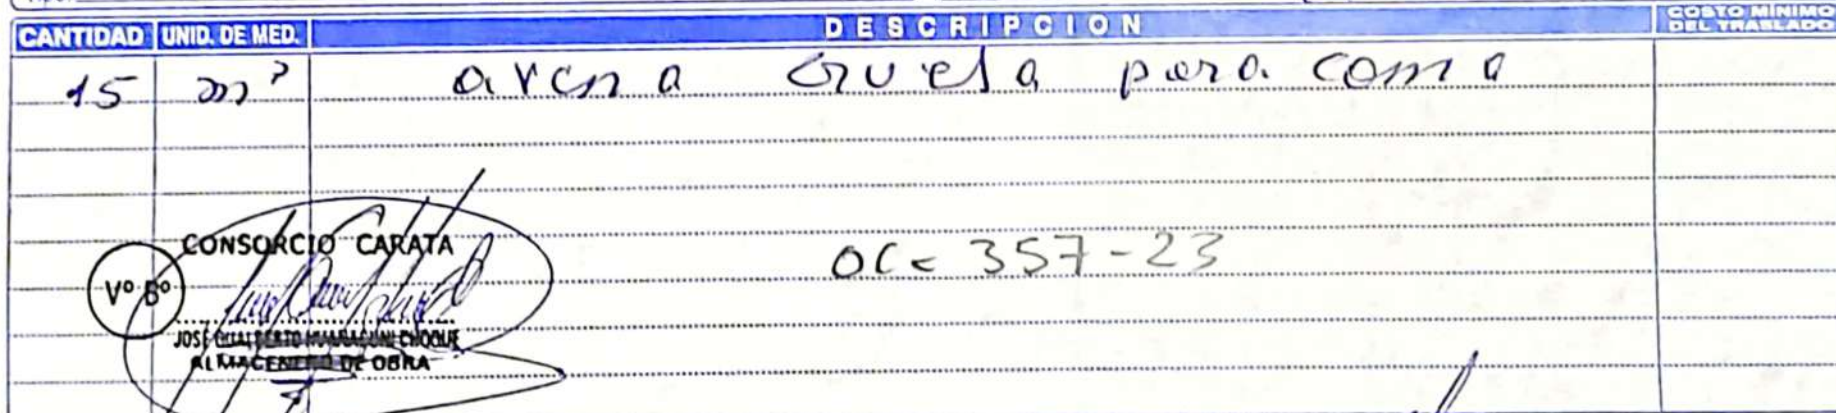 CANTIDAD UNID. DE MED. DESCRIPCION COSTO MÍNIMO DEL TRASLADO
15 m³ arena Gruesa para cama
CONSORCIO CARATA
OC = 357-23
Vº Bº
JOSÉ CHOQUE
ALMACENERO DE OBRA